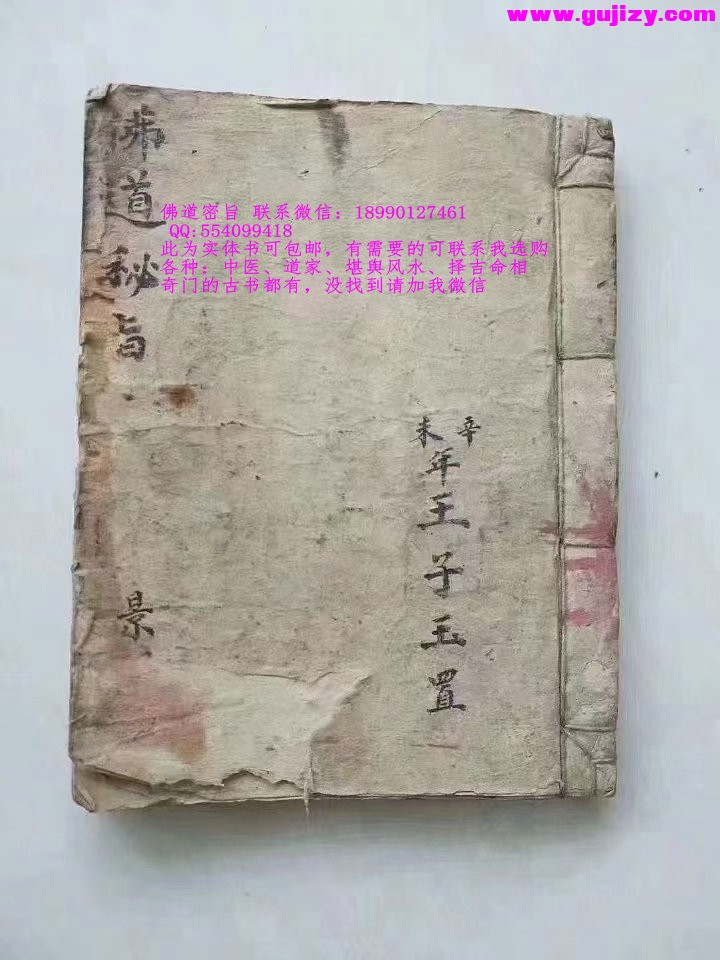 www.gujizy.com
佛道秘旨
佛道密旨 联系微信：18990127461
QQ:554099418
此为实体书可包邮，有需要的可联系我选购
各种：中医、道家、堪舆风水、择吉命相
奇门的古书都有，没找到请加我微信
辛未年王子玉置
景